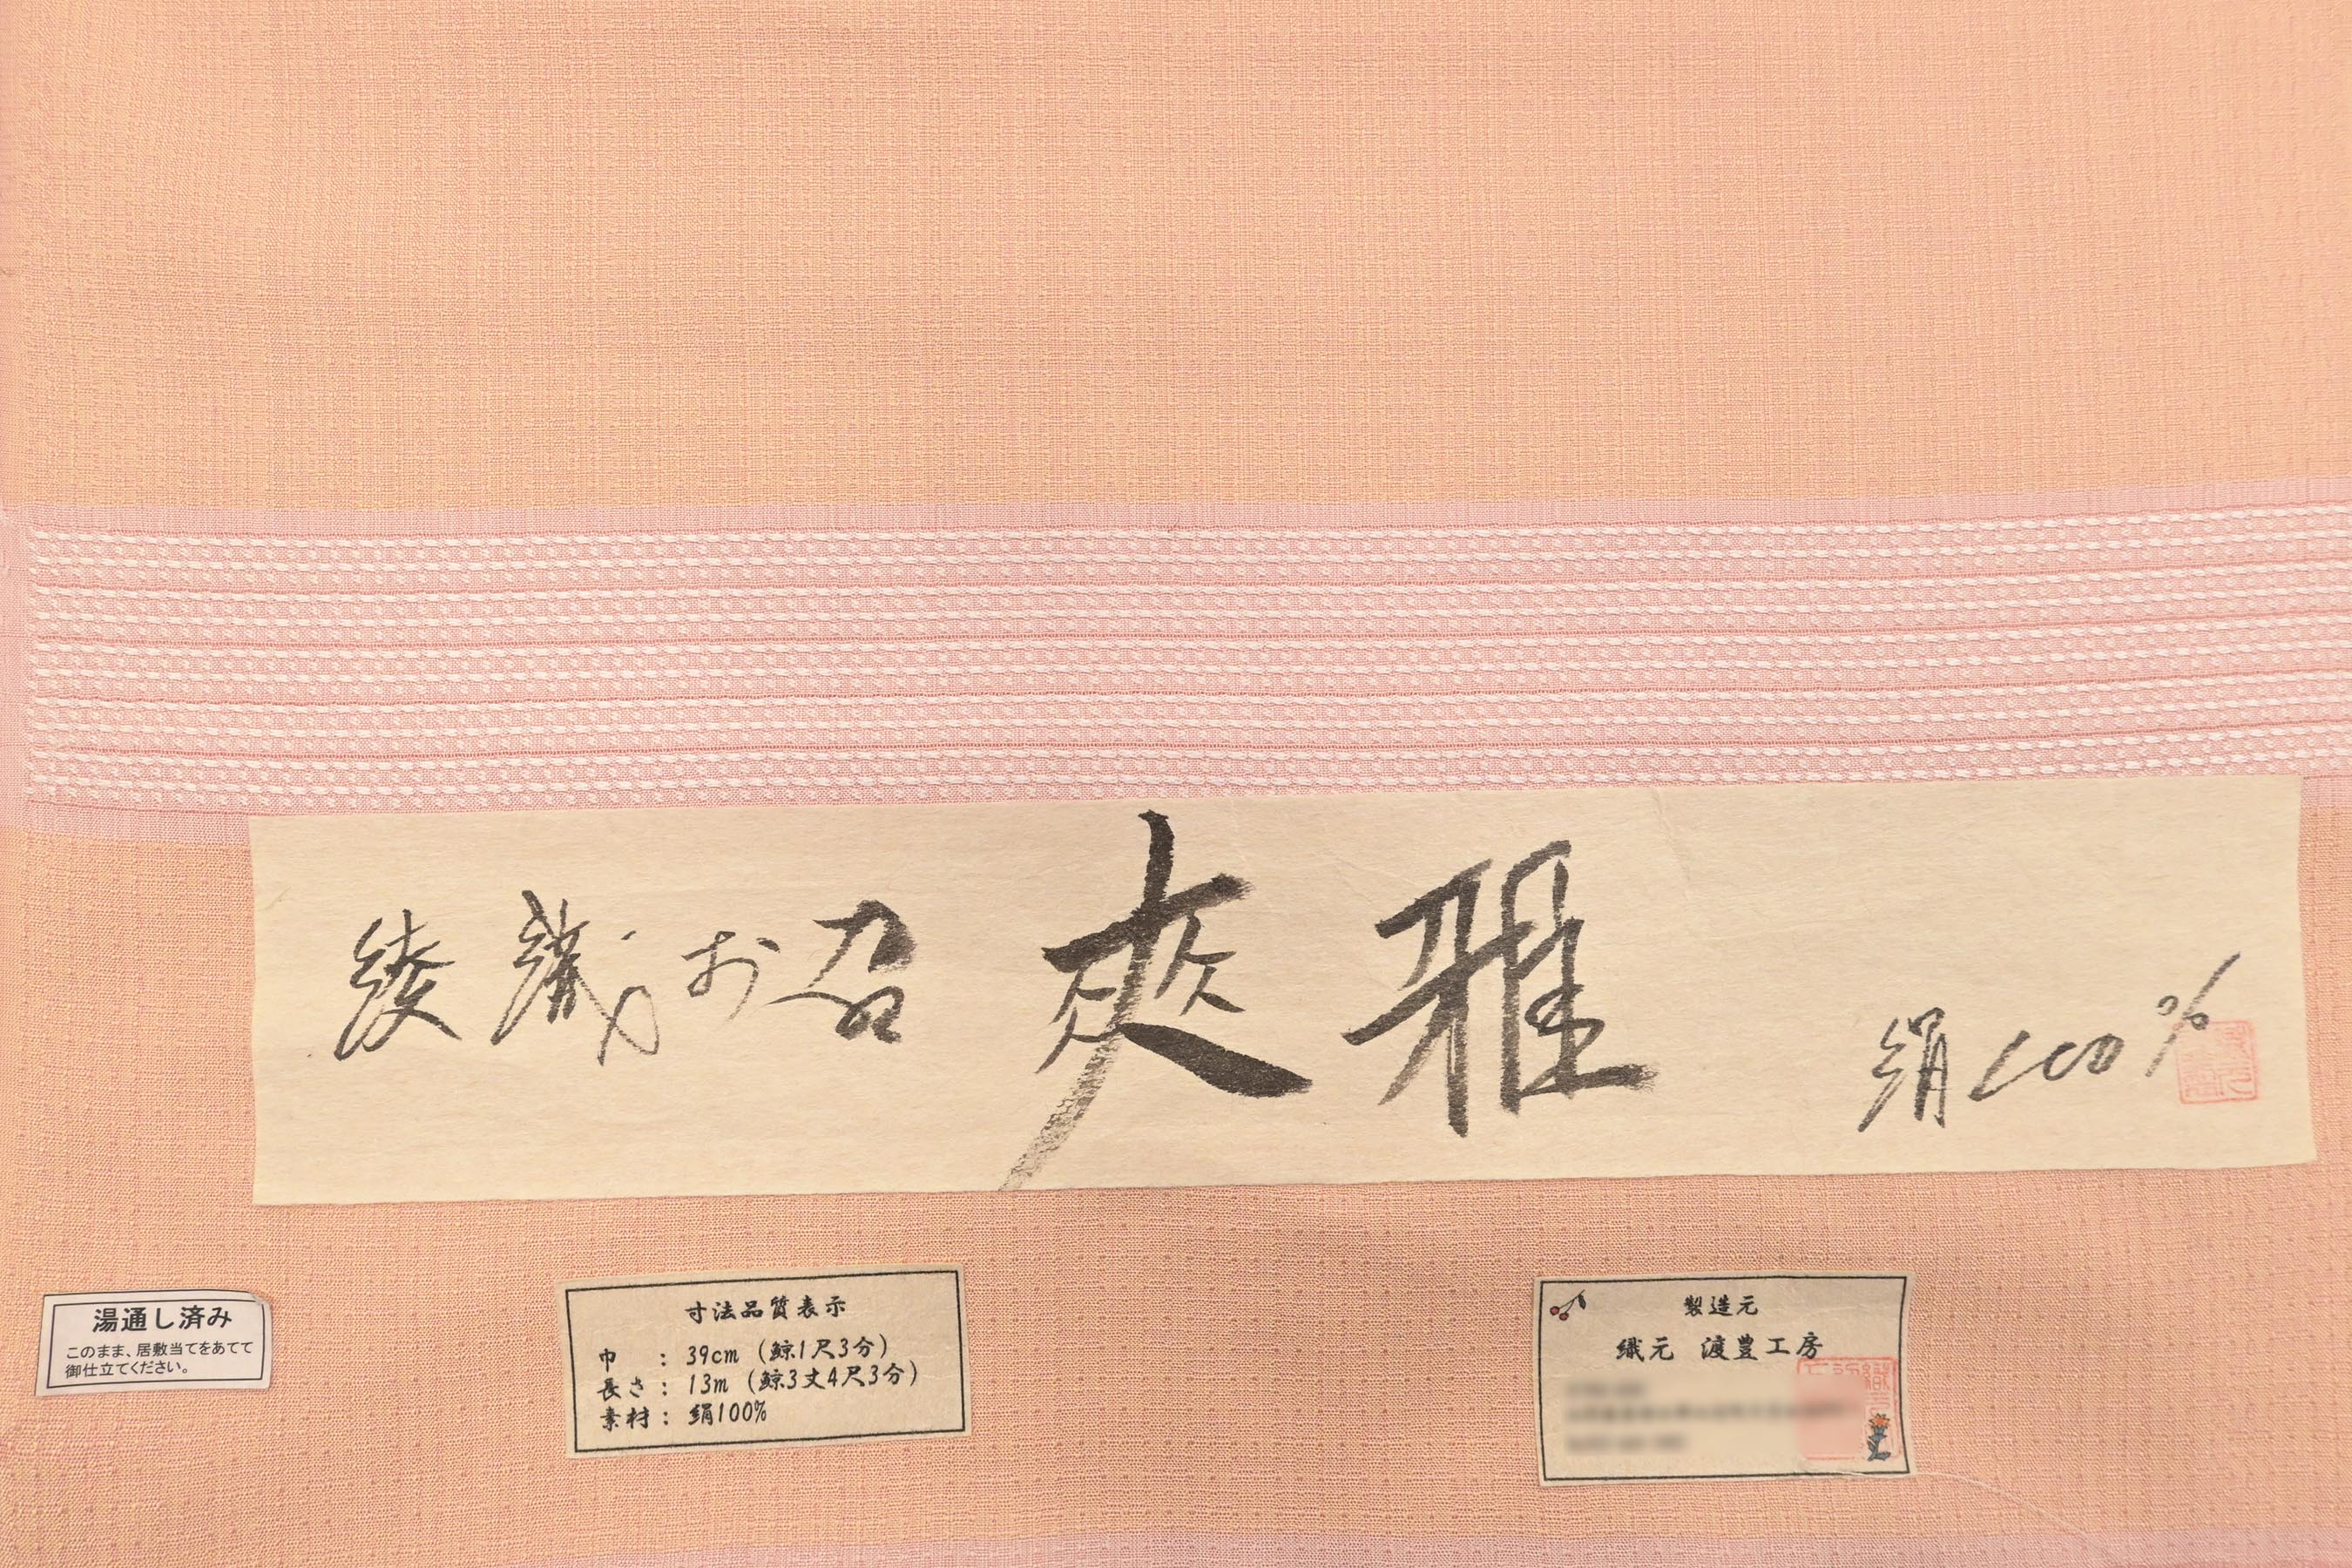 綾織お召 夾雅 絹100%
湯通し済み
このまま、居敷当てをあてて
御仕立てください。
寸法品質表示
巾 : 39cm (鯨1尺3分)
長さ : 13m (鯨3丈4尺3分)
素材 : 絹100%
製造元
織元 渡豊工房